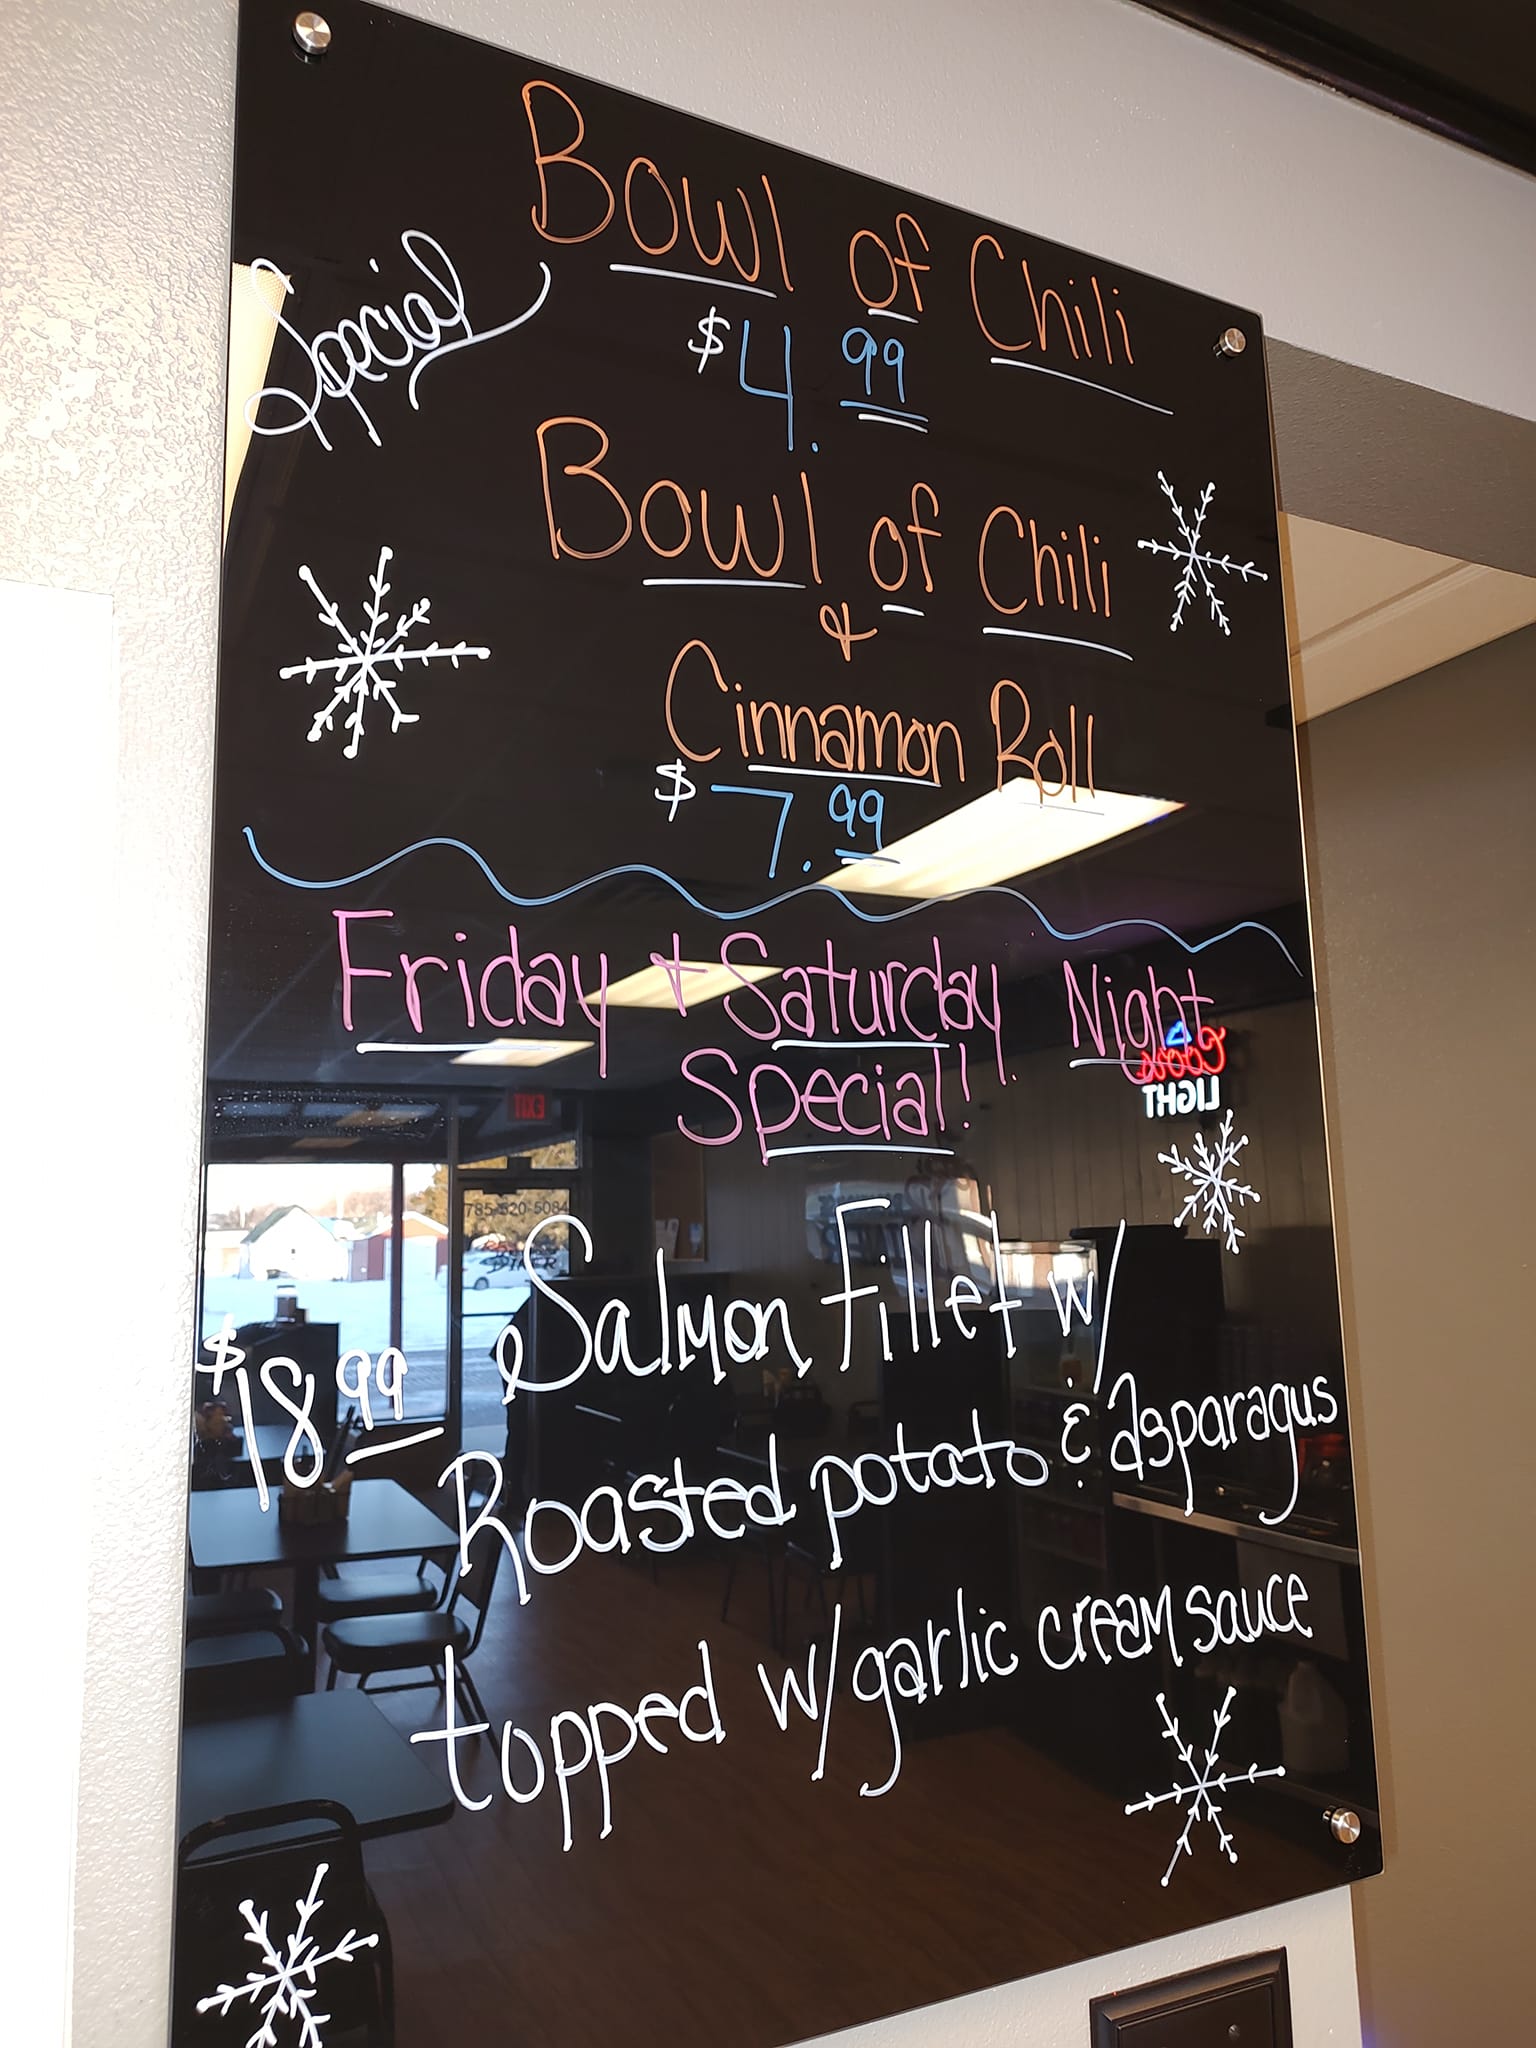 Special
Bowl of Chili
$4.99
Bowl of Chili
&
Cinnamon Roll
$7.99
Friday & Saturday Night
Special!
Salmon Fillet w/
$18.99
Roasted potato & asparagus
topped w/garlic cream sauce
Coors
LIGHT
EXIT
785-620-5084
DINER